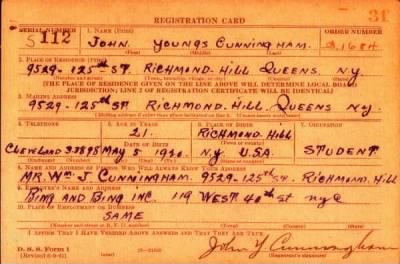 REGISTRATION CARD
SERIAL NUMBER 1. NAME (Print) ORDER NUMBER
S 112 JOHN YOUNGS CUNNINGHAM.
2. PLACE OF RESIDENCE (Print)
9529-125th ST RICHMOND-HILL QUEENS, N.Y.
[THE PLACE OF RESIDENCE GIVEN ON THE LINE ABOVE WILL DETERMINE LOCAL BOARD
JURISDICTION; LINE 2 OF REGISTRATION CERTIFICATE WILL BE IDENTICAL]
3. MAILING ADDRESS
9529-125th ST RICHMOND-HILL QUEENS N.Y.
[Mailing address if other than place indicated on line 2. If same insert word same]
4. TELEPHONE 5. AGE IN YEARS 6. PLACE OF BIRTH 7. OCCUPATION
21. RICHMOND HILL
DATE OF BIRTH
CLEVELAND 3-7898 MAY 5 1920. N.Y. U.S.A. STUDENT
8. NAME AND ADDRESS OF PERSON WHO WILL ALWAYS KNOW YOUR ADDRESS
MR. WM. J. CUNNINGHAM. 9529-125th ST. RICHMOND, HILL
9. EMPLOYER'S NAME AND ADDRESS
BING AND BING INC. 119 WEST 40th ST NYC
10. PLACE OF EMPLOYMENT OR BUSINESS
SAME
I AFFIRM THAT I HAVE VERIFIED ABOVE ANSWERS AND THAT THEY ARE TRUE.
D. S. S. Form 1
John Y Cunningham
(Registrant's signature)